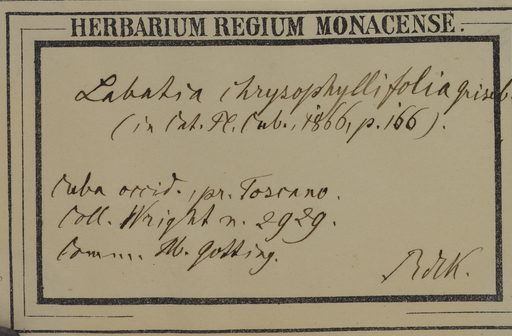 HERBARIUM REGIUM MONACENSE.
Labatia chrysophyllifolia Griseb.
(in Cat. Pl. Cub., 1866, p. 166).
Cuba occid., pr. Toscano.
Coll. Wright n. 2929.
Comm. M. Gotting.
Rdlk.